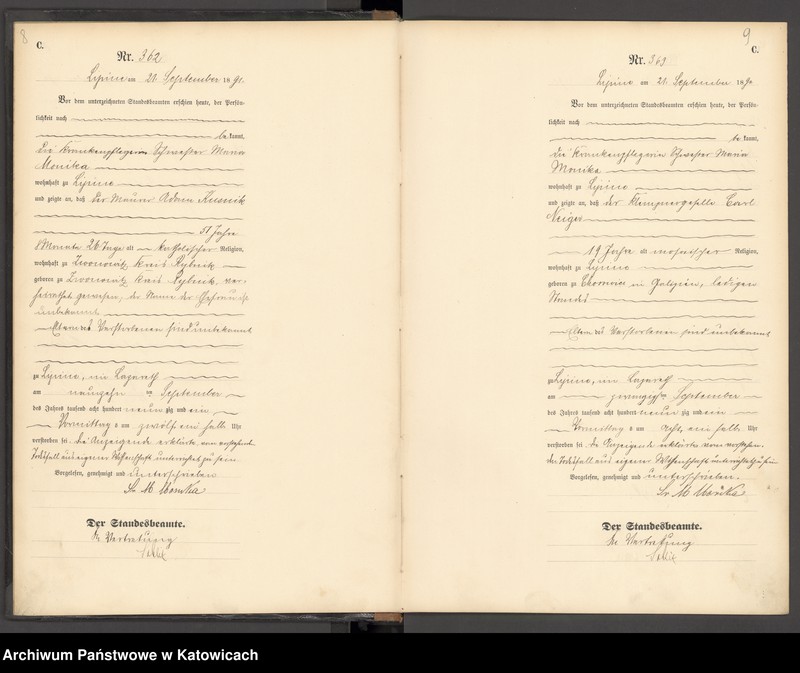 8
C.
Nr. 362
Lipine am 21. September 1891.
Vor dem unterzeichneten Standesbeamten erschien heute, der Persön-
lichkeit nach
be kannt,
die Krankenpflegerin Schwester Maria
Monika
wohnhaft zu Lipine
und zeigte an, daß der Maurer Adam
51 Jahre
8 Monate 26 Tage alt katholischer Religion,
wohnhaft zu Kreis Rybnik
geboren zu Kreis Rybnik, ver-
heirathet gewesen, der Name der Ehefrau ist
unbekannt
Eltern des Verstorbenen sind unbekannt
zu Lipine, im Lazareth
am neunzehn ten September
des Jahres tausend acht hundert neun zig und ein
Vormittag s um zwölf ein halb Uhr
verstorben sei. Die Anzeigende erklärte, vom vorstehenden
Todesfall aus eigener Wissenschaft unterrichtet zu sein
Vorgelesen, genehmigt und unterschrieben
Sr. M. Monika
Der Standesbeamte.
In Vertretung
9
C.
Nr. 363
Lipine am 21. September 189
Vor dem unterzeichneten Standesbeamten erschien heute, der Persön-
lichkeit nach
be kannt,
die Krankenpflegerin Schwester Maria
Monika
wohnhaft zu Lipine
und zeigte an, daß der Klempnergeselle Carl
Neiger
19 Jahre alt mosaischer Religion,
wohnhaft zu Lipine
geboren zu in Galizien, ledigen
Standes
Eltern des Verstorbenen sind unbekannt
zu Lipine, im Lazareth
am zwanzigsten September
des Jahres tausend acht hundert neun zig und ein
Vormittag s um acht, ein halb Uhr
verstorben sei. Die Anzeigende erklärte vom vorstehen-
den Todesfall aus eigener Wissenschaft unterrichtet zu sein
Vorgelesen, genehmigt und unterschrieben.
Sr. M. Monika
Der Standesbeamte.
In Vertretung
Archiwum Państwowe w Katowicach